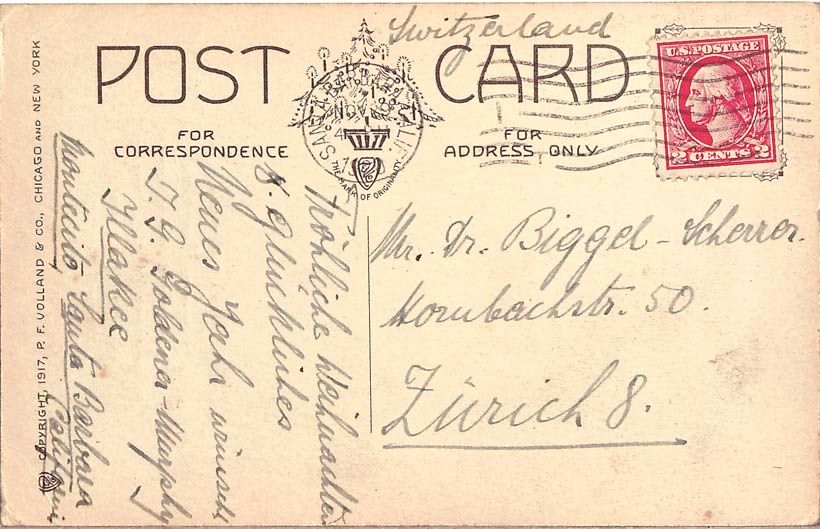 Switzerland
POST CARD
U.S. POSTAGE
2 CENTS 2
SANTA BARBARA CALIF.
NOV
FOR CORRESPONDENCE
FOR ADDRESS ONLY
THE MARK OF ORIGINALITY
Mr. Dr. Biggel-Scherrer.
Hornbachstr. 50.
Zürich 8.
Fröhliche Weihnachten
& glückliches
Neues Jahr wünscht
T. G. Goldena-Murphy
Montecito, Santa Barbara
COPYRIGHT, 1917, P. F. VOLLAND & CO., CHICAGO AND NEW YORK